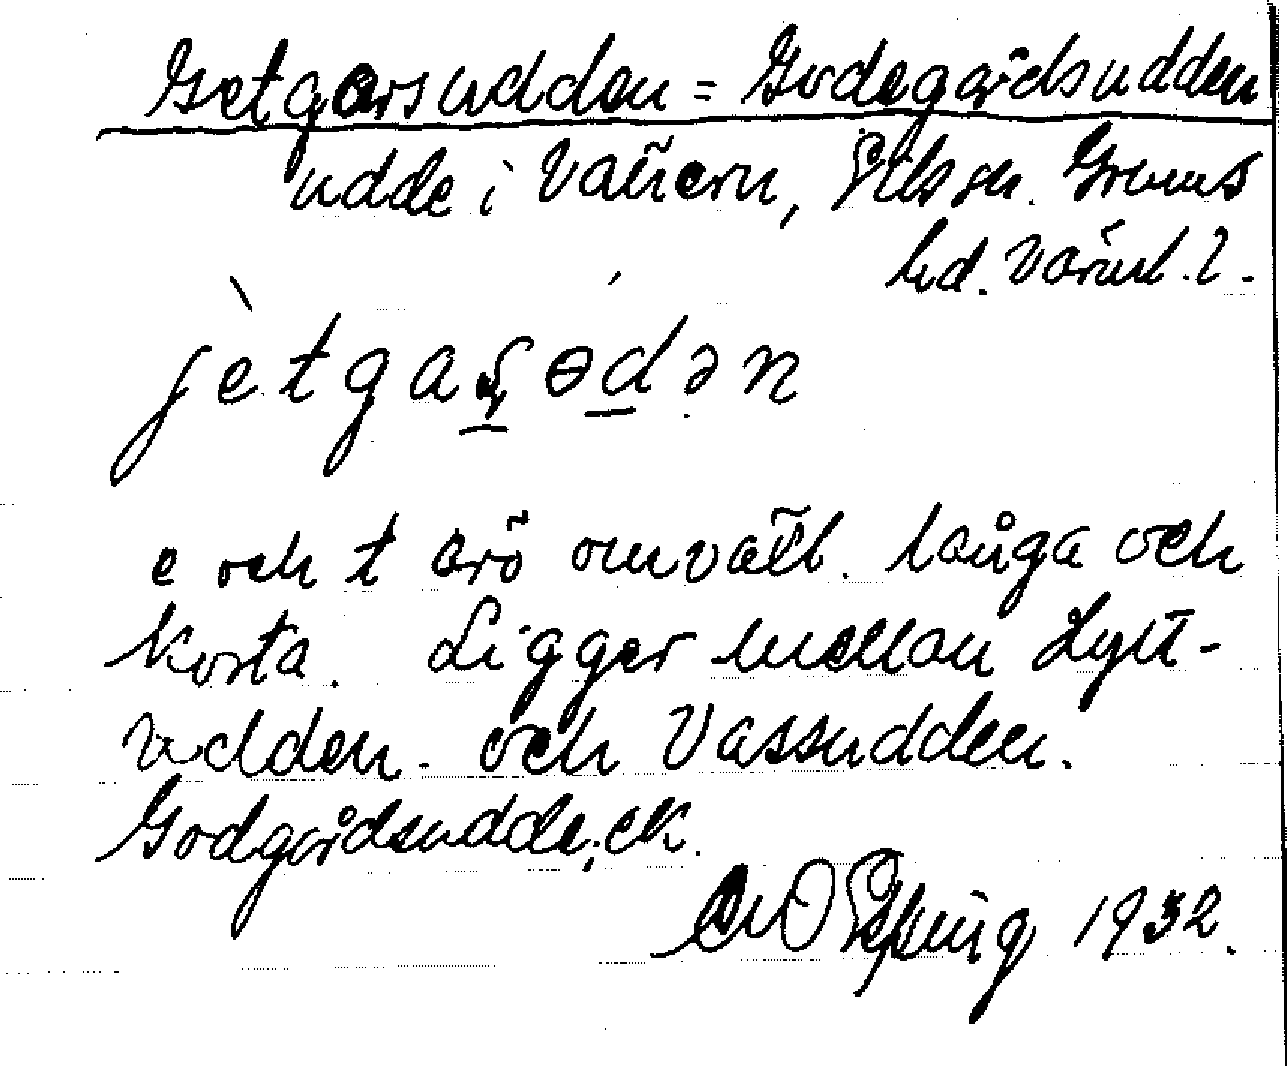 Getgarsudden = Godegårdsudden
udde i Vänern, Eds sn. Grums
hd. Värml. l.
jètgaʂɵdən
e och t äro omväxl. långa och
korta. Ligger mellan
udden och Vassudden.
Godgårdsudde, ek.
1932.